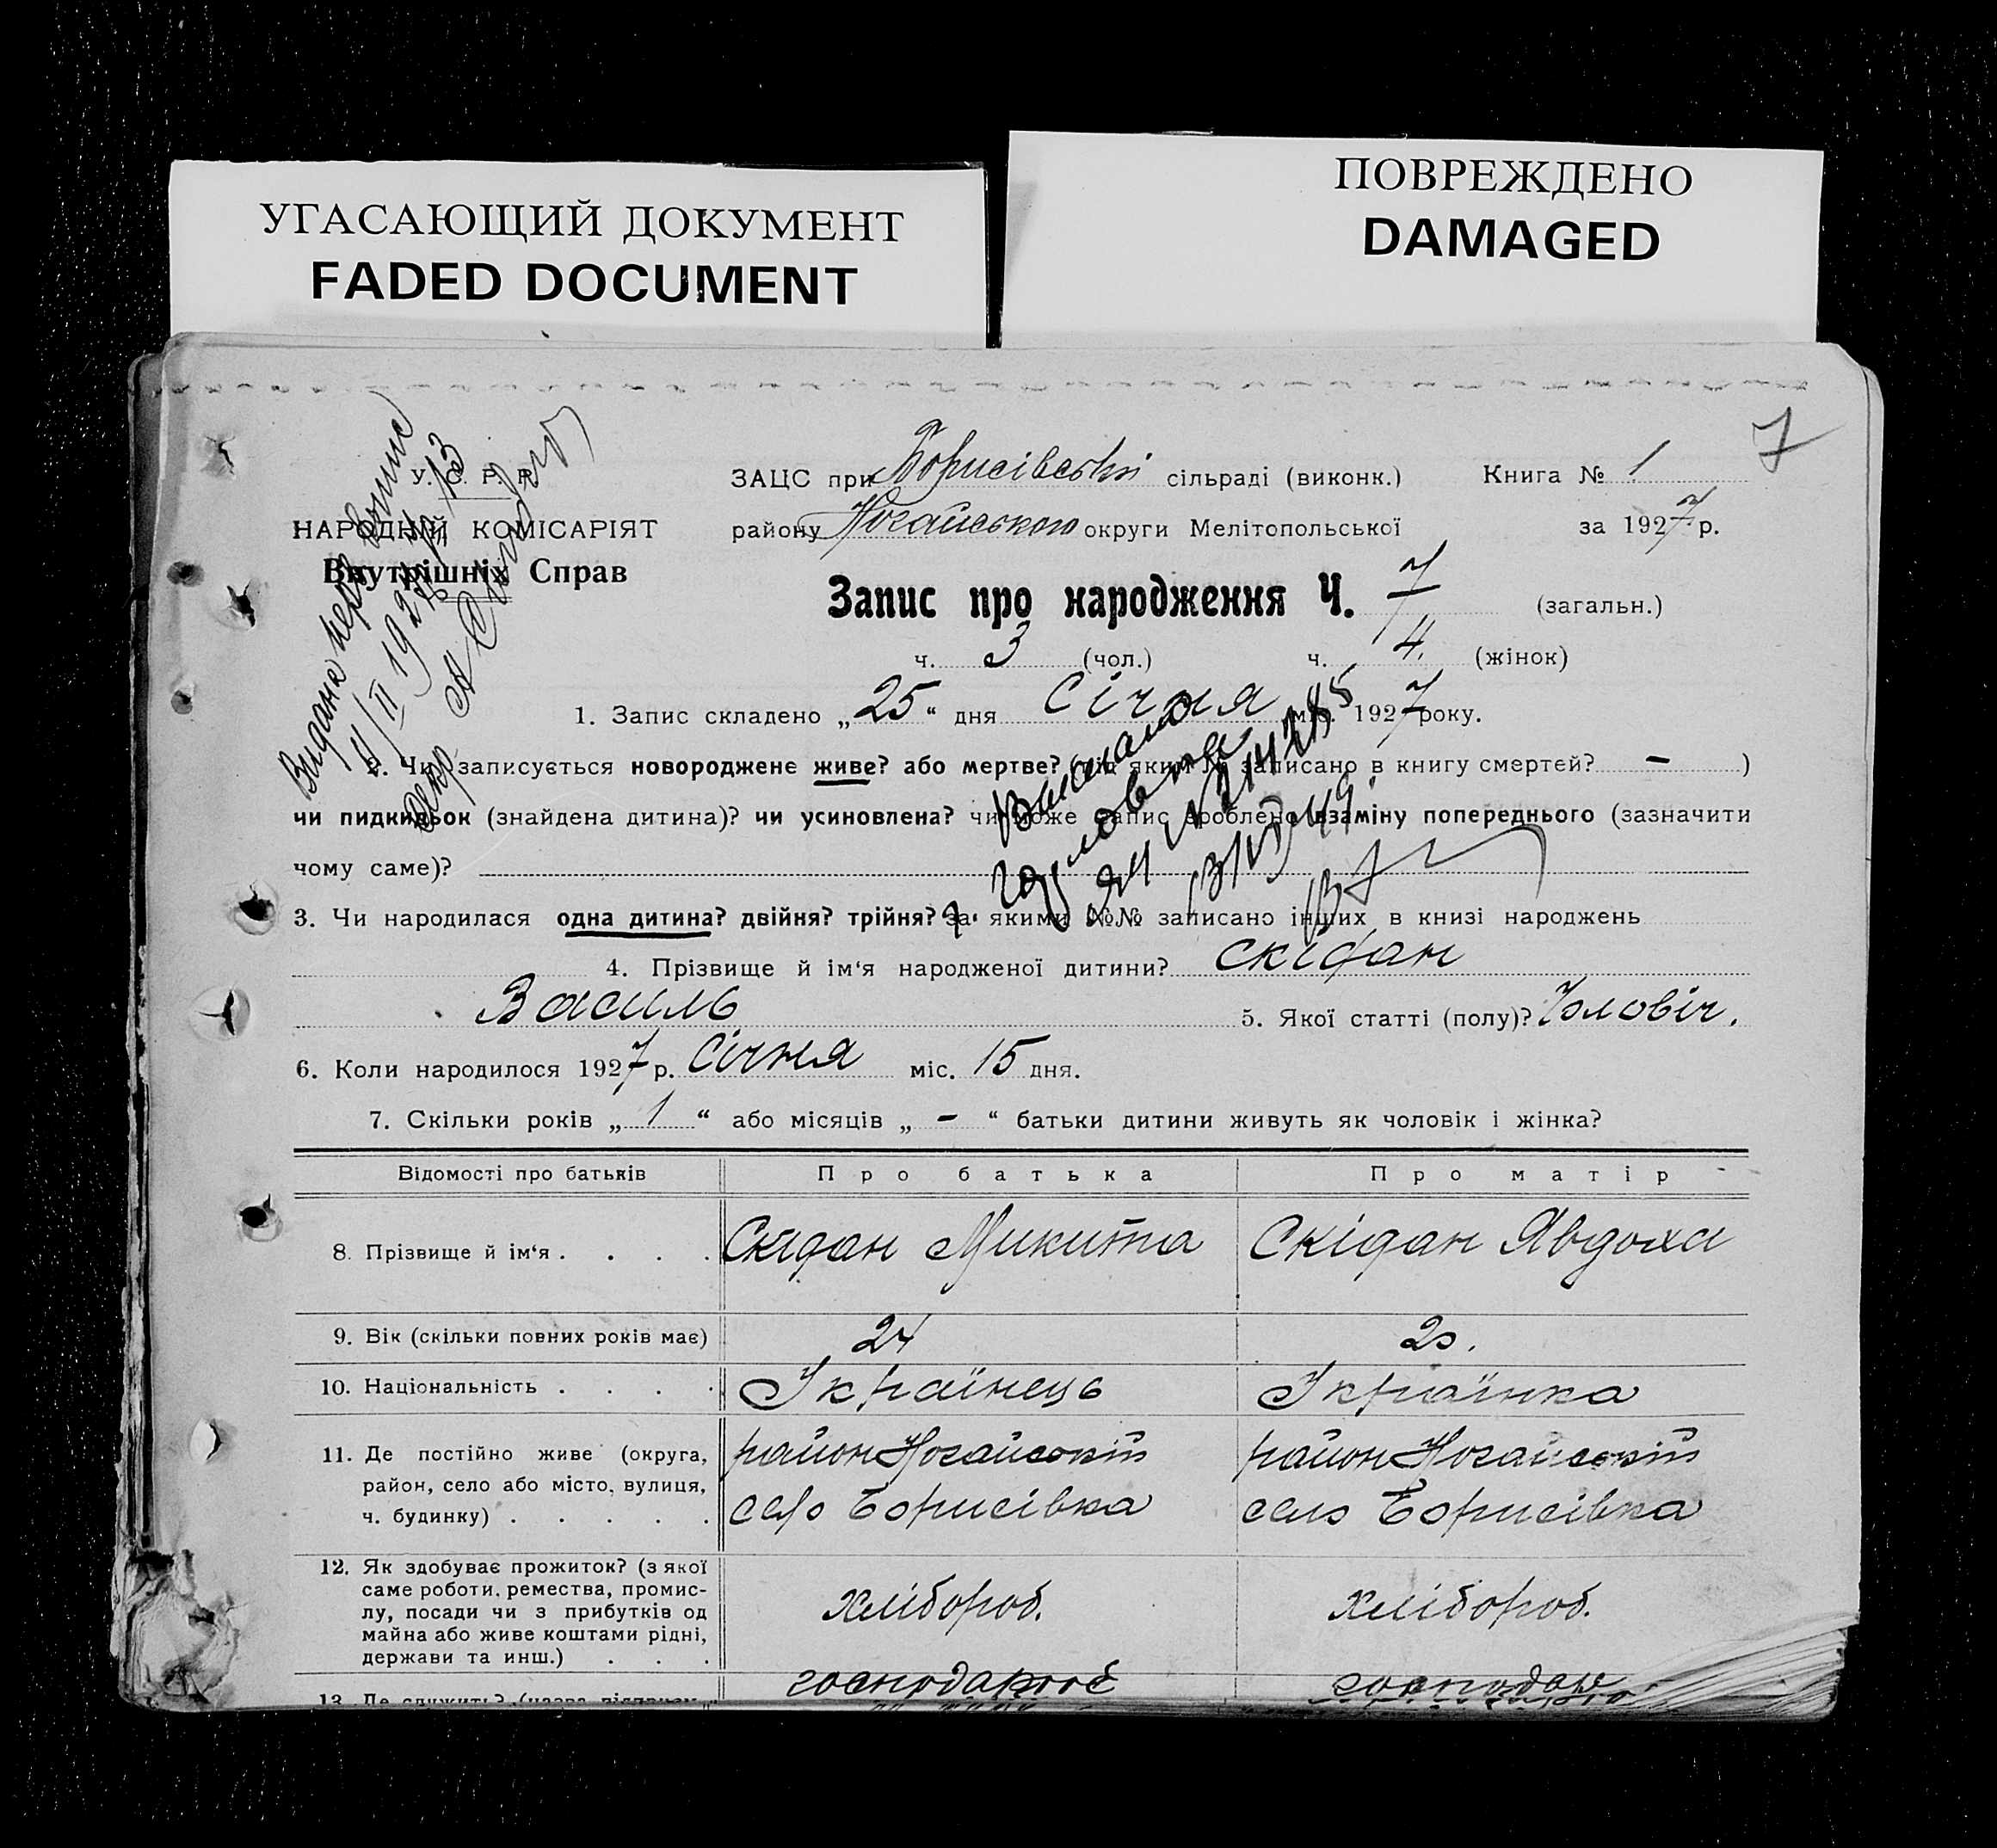 УГАСАЮЩИЙ ДОКУМЕНТ
FADED DOCUMENT
ПОВРЕЖДЕНО
DAMAGED
7
У. С. Р. Р.
НАРОДНІЙ КОМІСАРІЯТ
Внутрішніх Справ
ЗАЦС при Борисівській сільраді (виконк.) Книга № 1
району Ногайського округи Мелітопольської за 1927 р.
Запис про народження Ч. 7 (загальн.)
ч. 3 (чол.) ч. 4. (жінок)
Видана перв
1. Запис складено „25" дня Січня міс. 1927 року.
2. Чи записується новороджене живе? або мертве? (під яким № записано в книгу смертей? – )
чи пидкидьок (знайдена дитина)? чи усиновлена? чи може запис зроблено взаміну попереднього (зазначити
чому саме)?
3. Чи народилася одна дитина? двійня? трійня? за якими №№ записано інших в книзі народжень
4. Прізвище й ім'я народженої дитини? Скідан
Василь 5. Якої статті (полу)? Чоловіч.
6. Коли народилося 1927 р. Січня міс. 15 дня.
7. Скільки років „ 1 " або місяців „ – " батьки дитини живуть як чоловік і жінка?
Відомості про батьків Про батька Про матір
8. Прізвище й ім'я . . . . Скідан Микита Скідан Явдоха
9. Вік (скільки повних років має) 24 20.
10. Національність . . . . Українець Українка
11. Де постійно живе (округа, район Ногайський район Ногайський
район, село або місто, вулиця, село Борисівка село Борисівка
ч. будинку) . . . . .
12. Як здобуває прожиток? (з якої
саме роботи, ремества, промис-
лу, посади чи з прибутків од хлібороб. хлібороб.
майна або живе коштами рідні,
держави та инш.) . . .
13. Де служить?